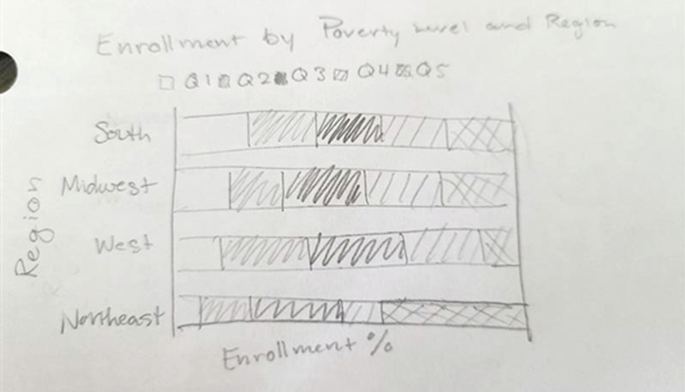 Enrollment by Poverty Level and Region
Q1 Q2 Q3 Q4 Q5
South
Midwest
West
Northeast
Region
Enrollment %